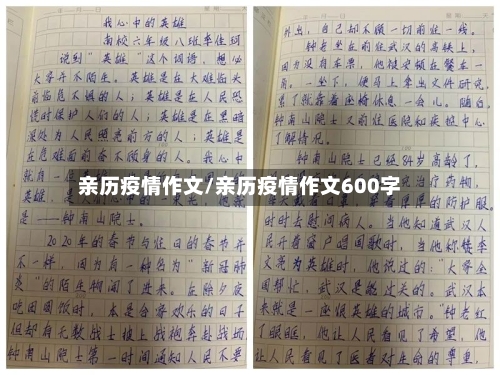 我心中的英雄
南校六年级八班李佳珂
说到“英雄”这个词语，想必
大家并不陌生。英雄是在大难临头
前临危不惧的人；英雄是在人民恐
慌时保护人们的人；英雄是在黑暗
深处为人民照亮前方的人；英雄是
在危难面前奋不顾身的人。我心中
就
是——钟南山院士。
2020年的春节与往日的春节并
不一样，因为有一种名为“新冠肺
炎”的陌生物闯了进来。在除夕夜
吃团圆饭时，本是合家欢乐的日子
但却有无数战士披上战袍奔赴战场
钟南山院士第一时间通知人民不要
外出，自己却不顾一切前往一线。
钟老坐在前往武汉的高铁上，
因为没有车票，他被安顿在餐车一
角。一坐下，便马上拿出文件研究，
累了就靠着座椅休息一会儿。随后，
钟南山院士又前往医院和疾控中心
了解情况。
钟南山院士已经84岁高龄了，
治疗药物，
的防护服。
时时去慰问病人。当他知道武汉人
民开着窗户唱国歌时，当他称赞李
文亮为英雄时，他说过的：“大家全
国帮忙，武汉是能过关的。武汉本
来就是一座很英雄的城市。”钟老红
了眼眶，他让人民看见了希望，他
让人民看见了医者对生命的尊重，
亲历疫情作文/亲历疫情作文600字